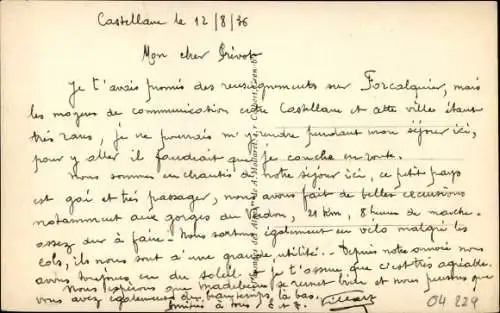 Castellane le 12/8/36
Mon cher Prévot
Je t'avais promis des renseignements sur Forcalquier, mais
les moyens de communication entre Castellane et cette villes étant
très rares, je ne pourrais m'y rendre pendant mon séjour ici,
pour y aller il faudrait que je couche en route.
Nous sommes enchantés de notre séjour ici, ce petit pays
est gai et très passager, nous avons fait de belles excursions
notamment aux gorges du Verdon, 21 Km, 8 heures de marche.
assez dur à faire. Nous sortons également en vélo malgré les
cols, ils nous sont d'une grande utilité. Depuis notre arrivée nous
avons toujours eu du soleil et je t'assure que c'est très agréable.
Nous espérons que Madeleine se remet bien et nous pensons que
vous avez également du beau temps là bas.
Amitiés à tous, C et J.
04 229